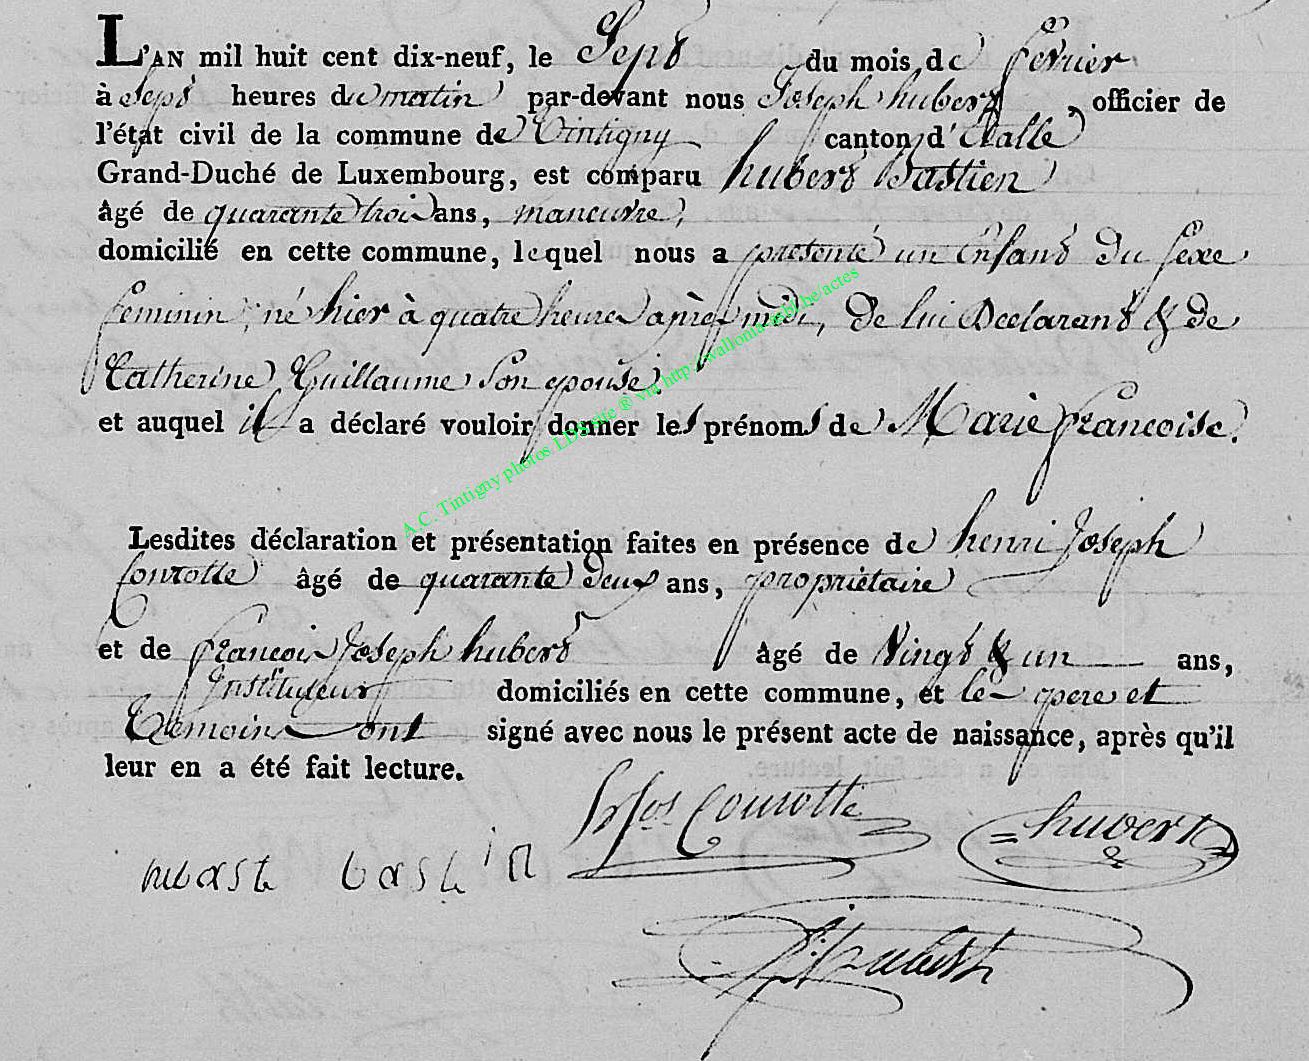 L'AN mil huit cent dix-neuf, le Sept du mois de fevrier
à Sept heures du matin par-devant nous Joseph hubert, officier de
l'état civil de la commune de Tintigny canton d'Etalle
Grand-Duché de Luxembourg, est comparu hubert Bastien
âgé de quarante trois ans, maneuvre,
domicilié en cette commune, lequel nous a presenté un Enfant du sexe
feminin, né hier à quatre heures après midi, de lui Declarant & de
Catherine Guillaume son epouse.
et auquel il a déclaré vouloir donner les prénoms de Marie francoise.
Lesdites déclaration et présentation faites en présence de henri Joseph
Courotte âgé de quarante deux ans, proprietaire
et de francois Joseph hubert âgé de Vingt & un ans,
Instituteur domiciliés en cette commune, et le pere et
Temoins ont signé avec nous le présent acte de naissance, après qu'il
leur en a été fait lecture.
Courotte hubert
bastin
hubert
A.C. Tintigny photos LDS site ® via http://wallonia-asbl.be/actes